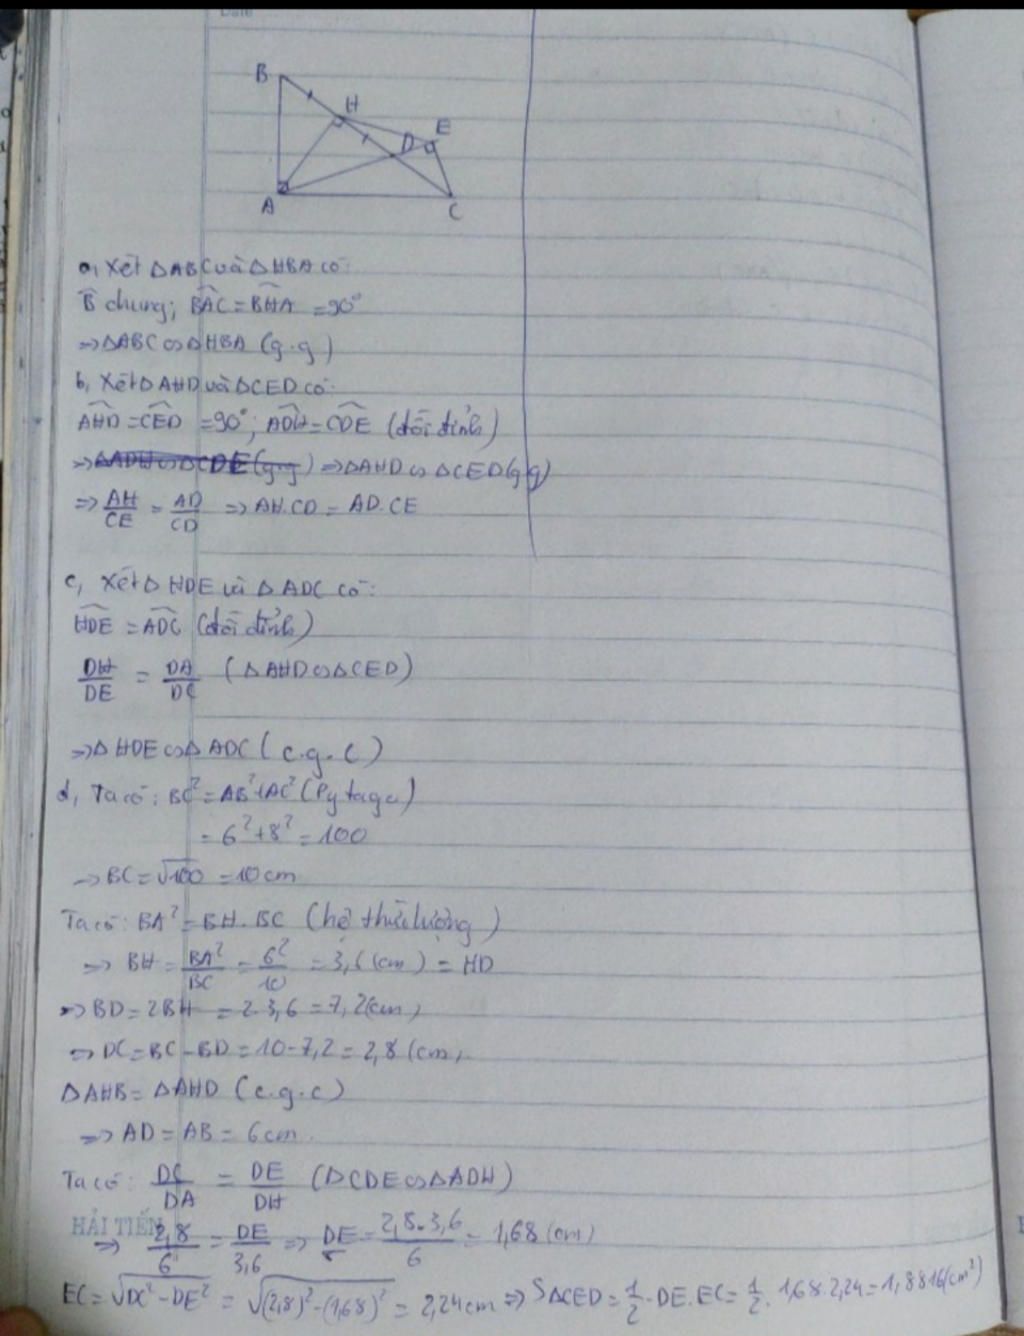 Date
B
H
E
D
A
C
a, Xét ΔABC và ΔHBA có:
B̂ chung; BAC = BHA = 90°
=> ΔABC ∽ ΔHBA (g.g)
b, Xét ΔAHD và ΔCED có:
AHD = CED = 90°; ADH = CDE (đối đỉnh)
=> ΔADH ∽ ΔCDE (g.g) => ΔAHD ∽ ΔCED (g.g)
=> AH/CE = AD/CD => AH.CD = AD.CE
c, Xét Δ HDE và Δ ADC có:
HDE = ADC (đối đỉnh)
DH/DE = DA/DC (ΔAHD ∽ ΔCED)
=> Δ HDE ∽ Δ ADC (c.g.c)
d, Ta có: BC² = AB² + AC² (Pytago)
= 6² + 8² = 100
=> BC = √100 = 10 cm
Ta có: BA² = BH.BC (hệ thức lượng)
=> BH = BA²/BC = 6²/10 = 3,6 (cm) = HD
=> BD = 2BH = 2.3,6 = 7,2 (cm)
=> DC = BC - BD = 10 - 7,2 = 2,8 (cm)
ΔAHB = ΔAHD (c.g.c)
=> AD = AB = 6cm.
Ta có: DC/DA = DE/DH (ΔCDE ∽ ΔADH)
HẢI TIẾN
=> 2,8/6 = DE/3,6 => DE = 2,8.3,6/6 = 1,68 (cm)
EC = √DC² - DE² = √(2,8)² - (1,68)² = 2,24cm => SΔCED = 1/2 . DE.EC = 1/2 . 1,68.2,24 = 1,8816 (cm²)